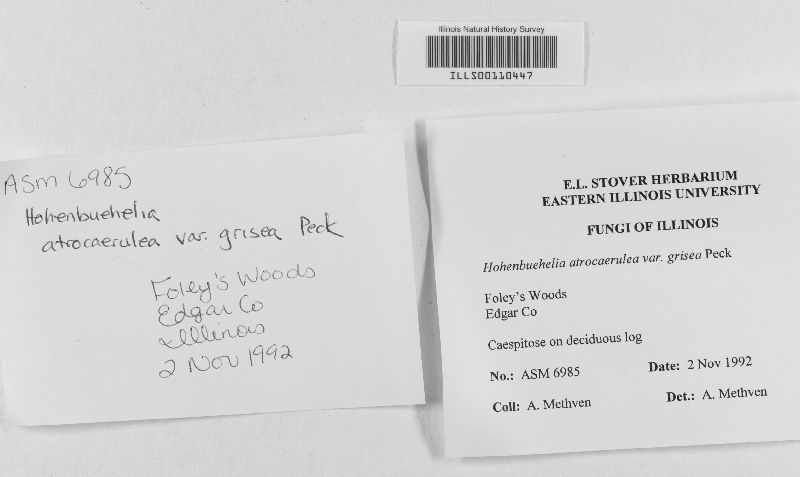 Illinois Natural History Survey
ILLS00110447
ASM 6985
Hohenbuehelia
atrocaerulea var. grisea Peck
Foley's Woods
Edgar Co
Illinois
2 Nov 1992
E.L. STOVER HERBARIUM
EASTERN ILLINOIS UNIVERSITY
FUNGI OF ILLINOIS
Hohenbuehelia atrocaerulea var. grisea Peck
Foley's Woods
Edgar Co
Caespitose on deciduous log
No.: ASM 6985 Date: 2 Nov 1992
Coll: A. Methven Det.: A. Methven